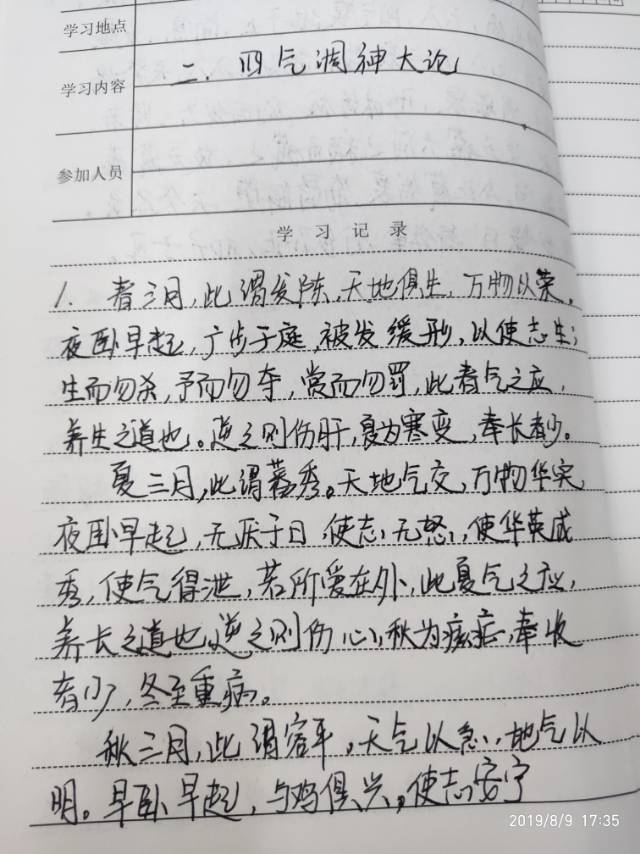 学习地点
学习内容
二、四气调神大论
参加人员
学习记录
1. 春三月,此谓发陈,天地俱生,万物以荣。
夜卧早起,广步于庭,被发缓形,以使志生;
生而勿杀,予而勿夺,赏而勿罚,此春气之应,
养生之道也。逆之则伤肝,夏为寒变,奉长者少。
夏三月,此谓蕃秀。天地气交,万物华实
夜卧早起,无厌于日,使志无怒,使华英成
秀,使气得泄,若所爱在外,此夏气之应,
养长之道也,逆之则伤心,秋为痎疟,奉收
者少,冬至重病。
秋三月,此谓容平,天气以急,地气以
明。早卧早起,与鸡俱兴。使志安宁
2019/8/9 17:35